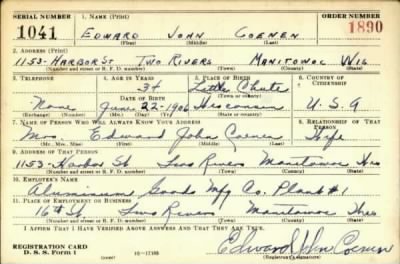 SERIAL NUMBER 1. NAME (Print) ORDER NUMBER
1041 EDWARD JOHN COENEN 1890
(First) (Middle) (Last)
2. ADDRESS (Print)
1153-HARBOR ST TWO RIVERS MANITOWOC WIS
(Number and street or R. F. D. number) (Town) (County) (State)
3. TELEPHONE 4. AGE IN YEARS 5. PLACE OF BIRTH 6. COUNTRY OF CITIZENSHIP
34 Little Chute
DATE OF BIRTH
None June 22-1906 Wisconsin U.S.A
(Exchange) (Number) (Mo.) (Day) (Yr.) (State or country)
7. NAME OF PERSON WHO WILL ALWAYS KNOW YOUR ADDRESS 8. RELATIONSHIP OF THAT PERSON
Mrs. Edward John Coenen Wife
(Mr., Mrs., Miss) (First) (Middle) (Last)
9. ADDRESS OF THAT PERSON
1153-Harbor St Two Rivers Manitowoc Wis
(Number and street or R. F. D. number) (Town) (County) (State)
10. EMPLOYER'S NAME
Aluminum Goods Mfg Co. Plant #1
11. PLACE OF EMPLOYMENT OR BUSINESS
16th Two Rivers Manitowoc Wis
(Number and street or R. F. D. number) (Town) (County) (State)
I AFFIRM THAT I HAVE VERIFIED ABOVE ANSWERS AND THAT THEY ARE TRUE.
REGISTRATION CARD
D. S. S. Form 1 Edward John Coenen
(Registrant's signature)